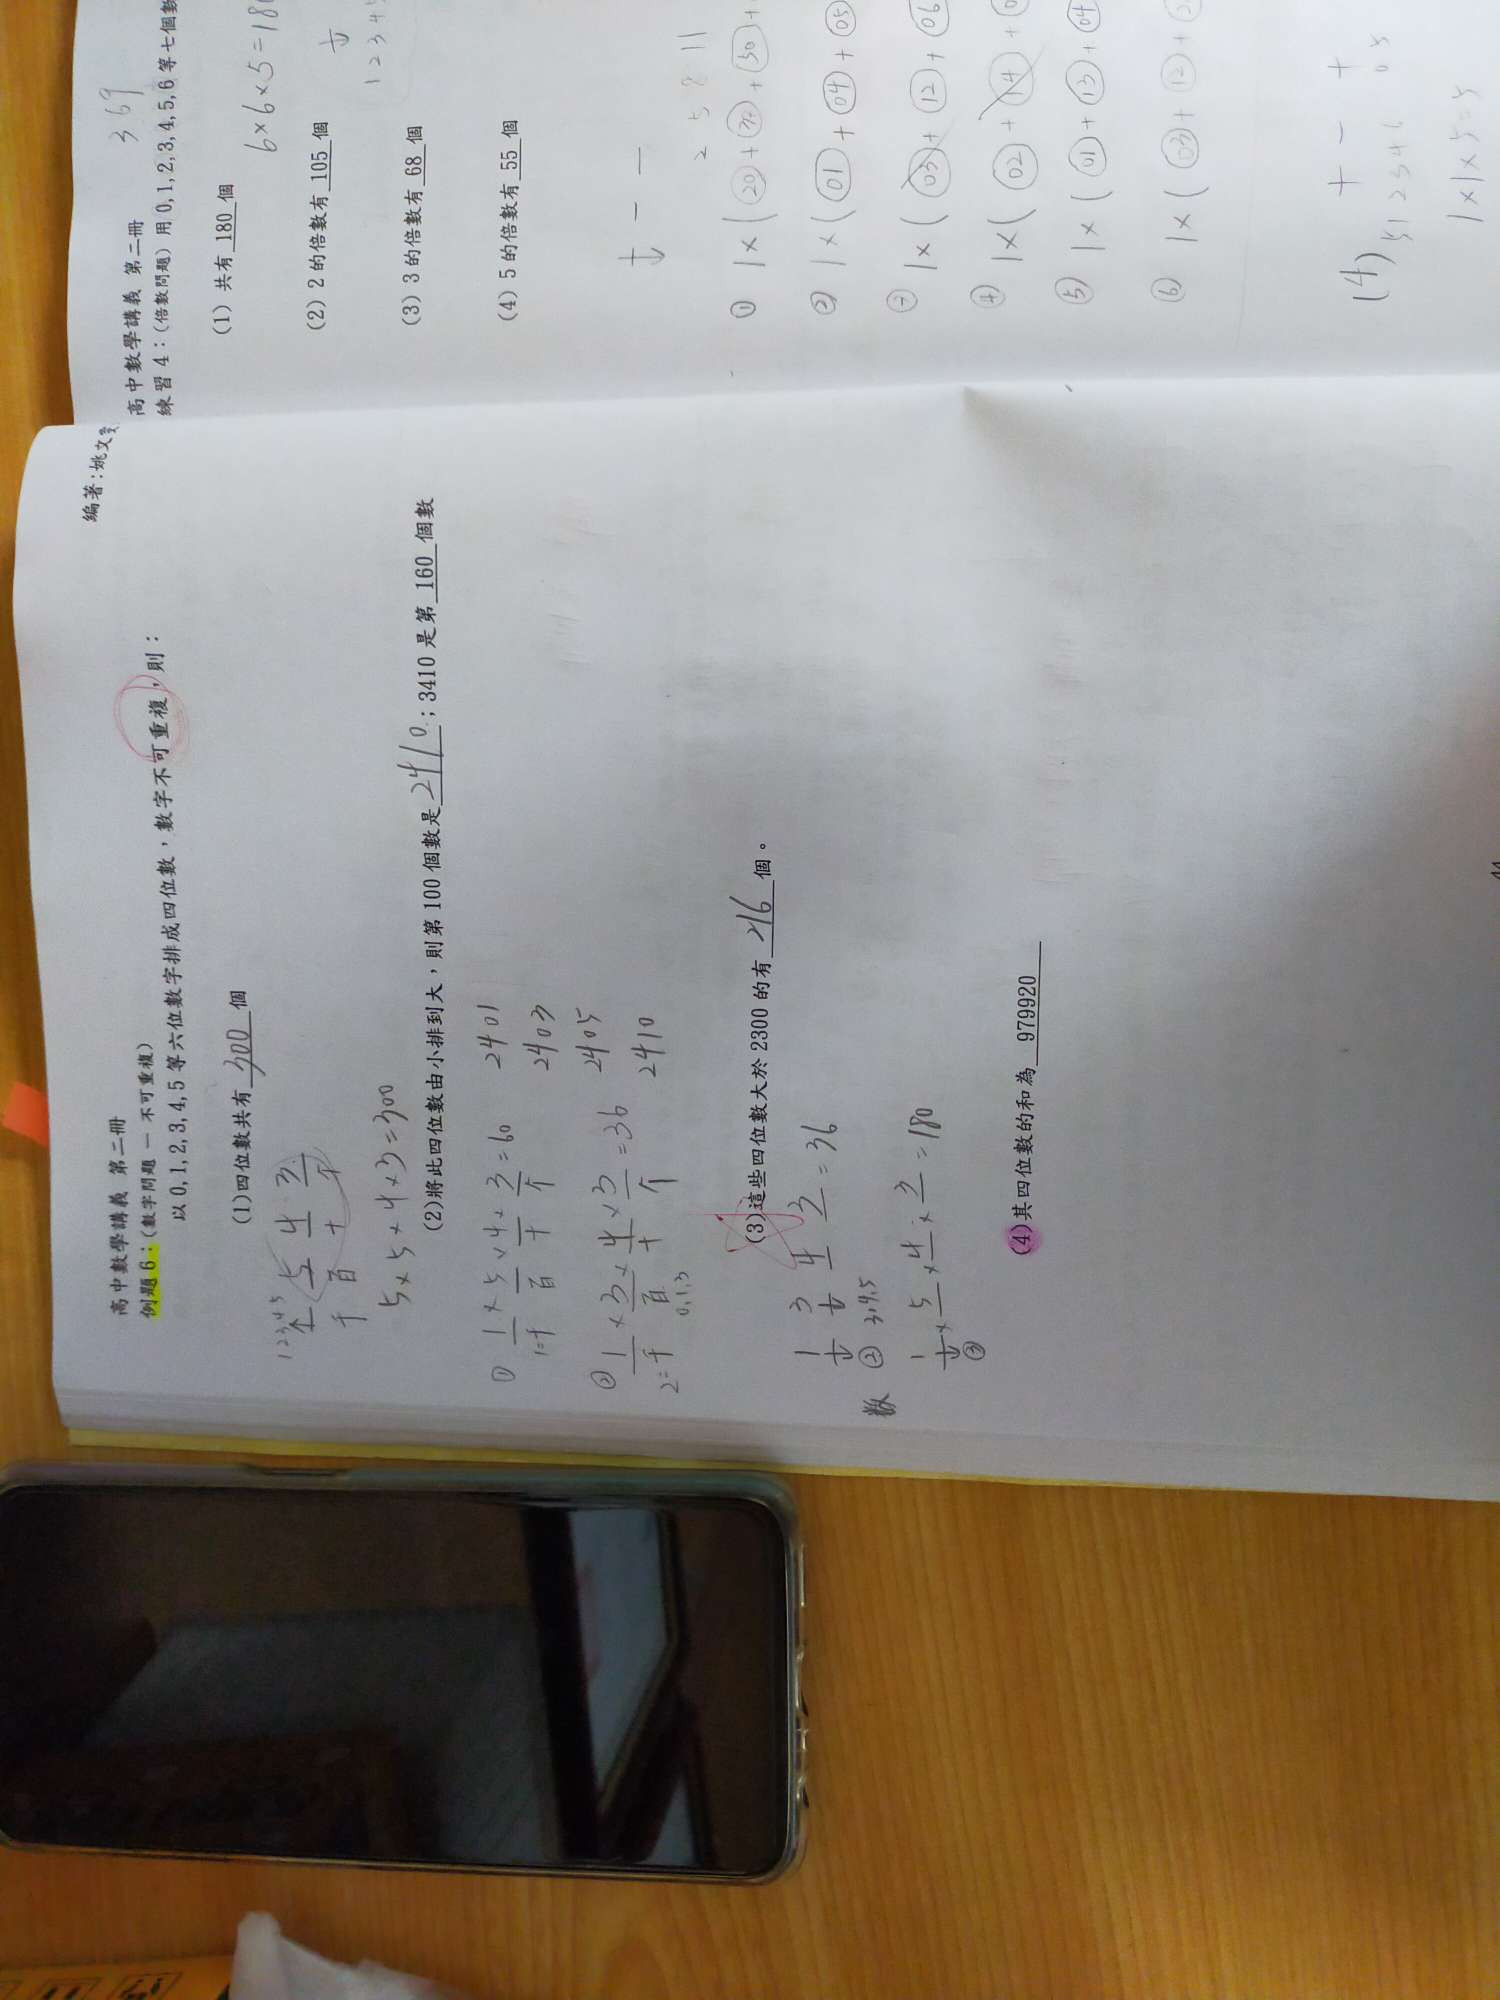 高中數學講義 第二冊
編著:姚文
例題6:(數字問題-不可重複)
以0,1,2,3,4,5等六位數字排成四位數,數字不可重複,則:
(1)四位數共有 300 個
12345
5 4 3
千 百 十 个
5×5×4×3=300
(2)將此四位數由小排到大,則第100個數是 2410 ;3410是第 160 個數
① 1×5×4×3=60
1=千 百 十 个
② 1×3×4×3=36
2=千 百 十 个
0,1,3
2401
2403
2405
2410
(3)這些四位數大於2300的有 216 個。
1 3 4 3 =36
② 3,4,5
數
1×5×4×3=180
③
(4)其四位數的和為 979920
高中數學講義 第二冊
369
練習4:(倍數問題)用0,1,2,3,4,5,6等七個數
(1) 共有 180 個
6×6×5=180
(2) 2的倍數有 105 個
(3) 3的倍數有 68 個
(4) 5的倍數有 55 個
2 5 8 11
① 1×(20+
② 1×(01+04+05
1×(03+12+06
④ 1×(02+14+
⑤ 1×(01+13+04
⑥ 1×(03+12+
(4)
1×1×5=5